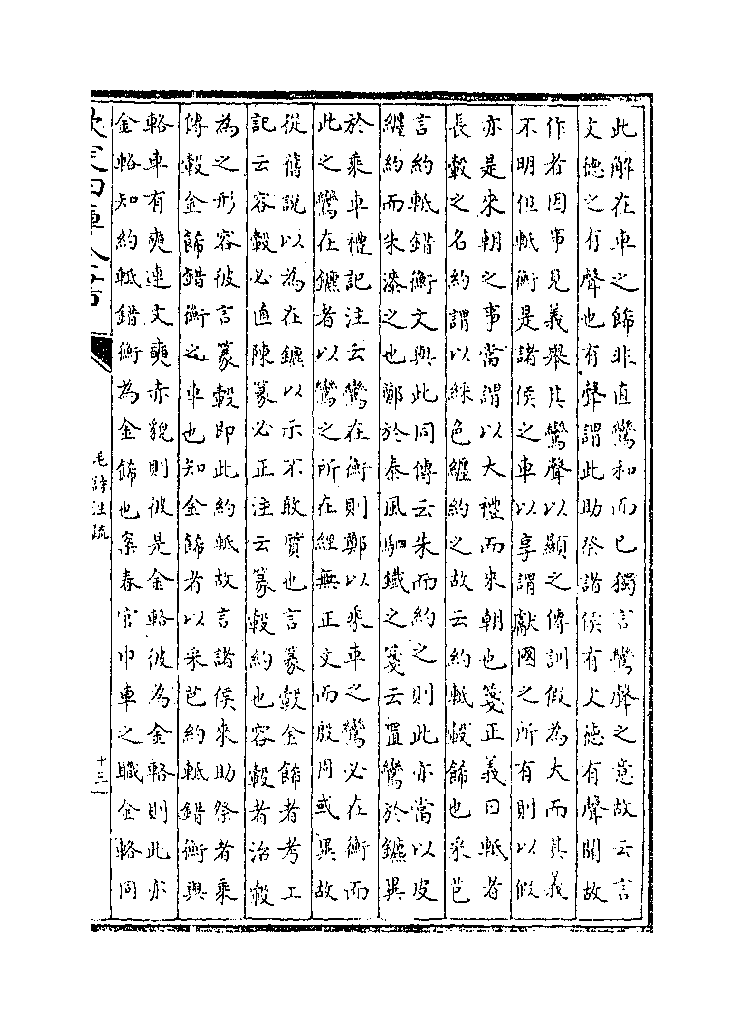 此解在車之飾非直鸞和而已獨言鸞聲之意故云言
文德之有聲也有聲謂此助祭諸侯有文德有聲聞故
作者因事見義舉其鸞聲以顯之傳訓假為大而其義
不明但軝衡是諸侯之車以享謂獻國之所有則以假
亦是來朝之事當謂以大禮而來朝也箋正義曰軝者
長轂之名約謂以綵色纏約之故云約軝轂飾也采芑
言約軝錯衡文與此同傳云朱而約之則此亦當以皮
纏約而朱漆之也鄭於秦風駟鐵之箋云置鸞於鑣異
於乘車禮記注云鸞在衡則鄭以乘車之鸞必在衡而
此之鸞在鑣者以鸞之所在經無正文而殷周或異故
從舊說以為在鑣以示不敢質也言篆轂金飾者考工
記云容轂必直陳篆必正注云篆轂約也容轂者治轂
為之形容彼言篆轂即此約軝故言諸侯來助祭者乘
傳轂金飾錯衡之車也知金飾者以采芑約軝錯衡與
輅車有奭連文奭赤貌則彼是金輅彼為金輅則此亦
金輅知約軝錯衡為金飾也案春官巾車之職金輅同
毛詩注疏
十三